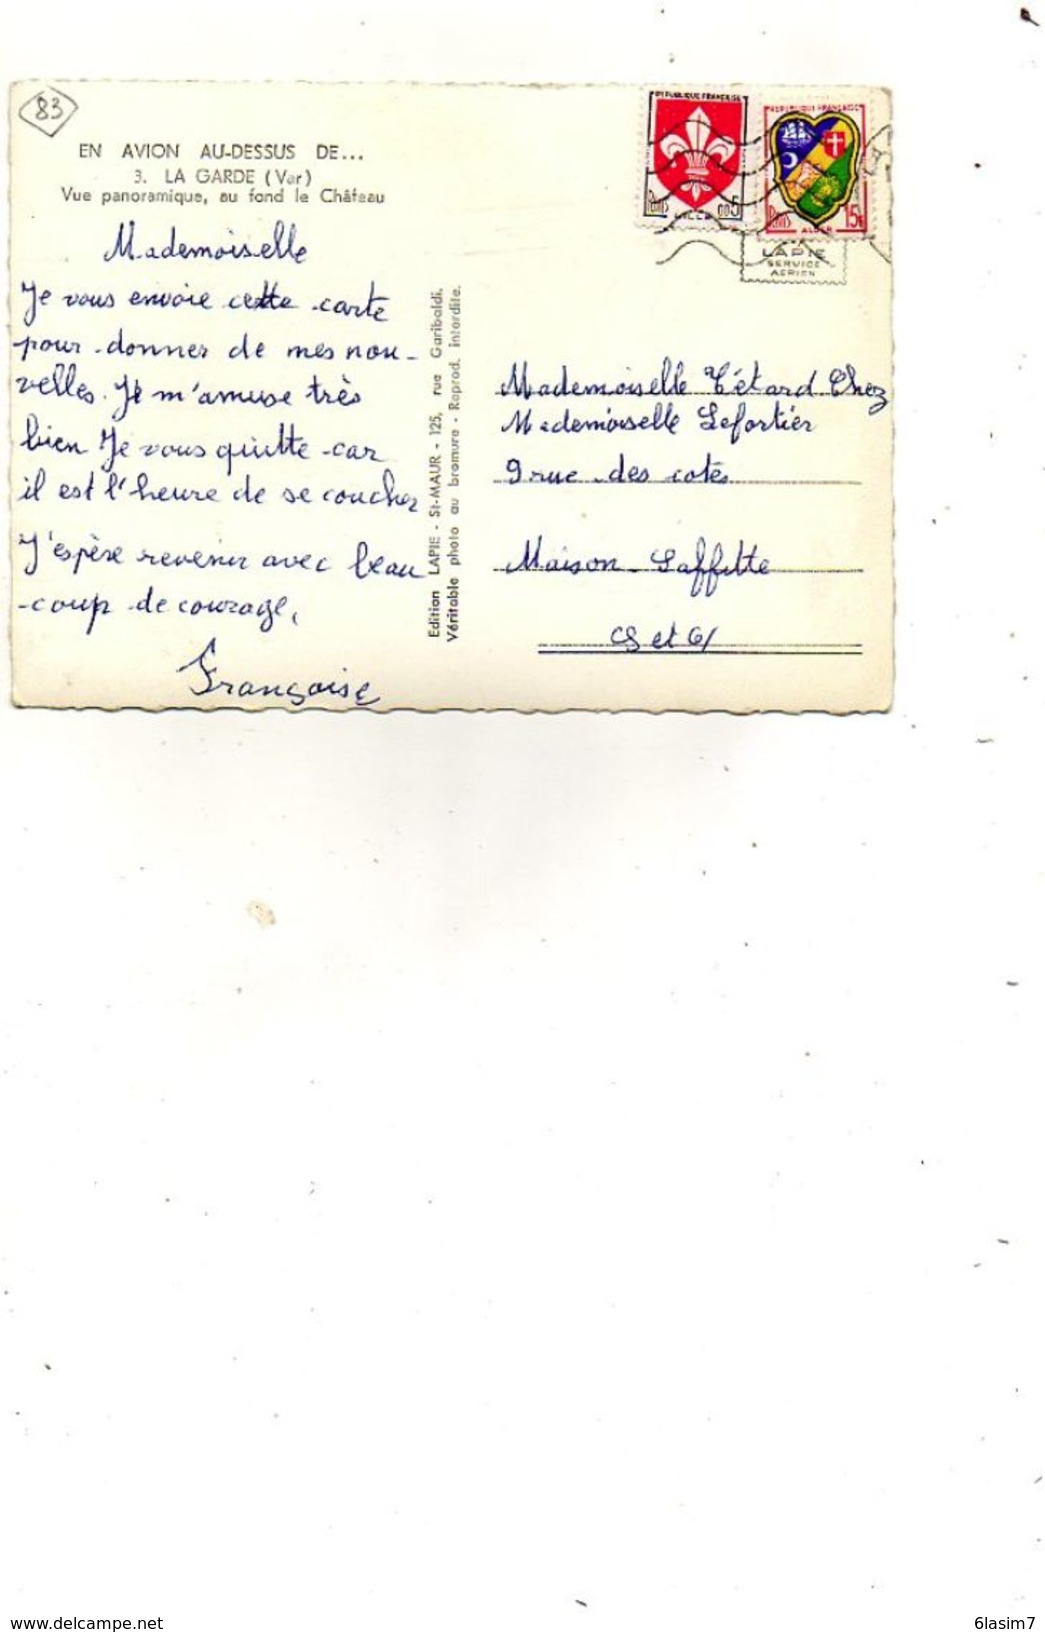 83
EN AVION AU-DESSUS DE...
3. LA GARDE (Var)
Vue panoramique, au fond le Château
Mademoiselle
Je vous envoie cette carte
pour donner de mes nou-
velles. Je m'amuse très
bien Je vous quitte car
il est l'heure de se coucher
J'espère revenir avec beau
-coup de courage,
Françoise
Edition LAPIE - St-MAUR - 125, rue Garibaldi.
Véritable photo au bromure - Reprod. interdite.
REPUBLIQUE FRANÇAISE
POSTES LILLE 0,05
REPUBLIQUE FRANÇAISE
POSTES ALGER 15F
LAPIE
SERVICE
AERIEN
Mademoiselle Tétard Chez
Mademoiselle Lefortier
9 rue des cotes
Maison-Laffitte
S et O
www.delcampe.net
6lasim7